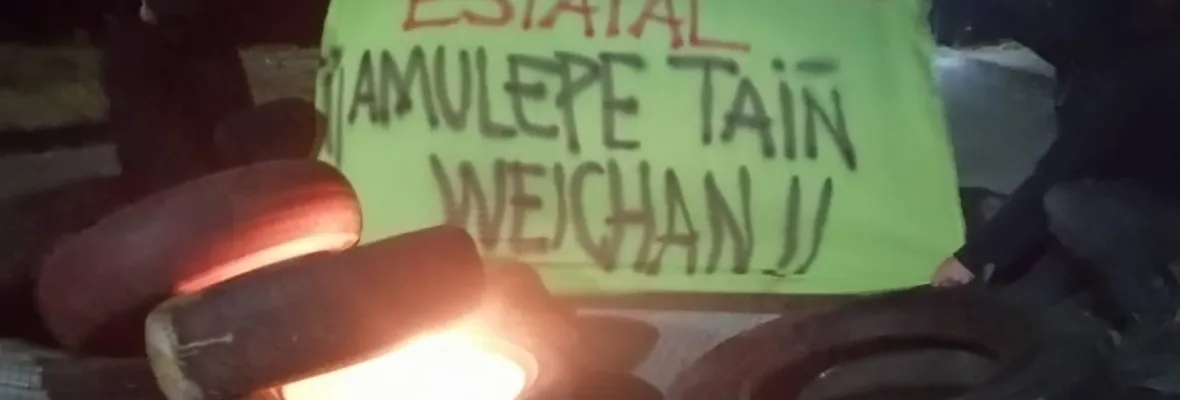 ESTATAL
¡¡AMULEPE TAIÑ
WEICHAN!!